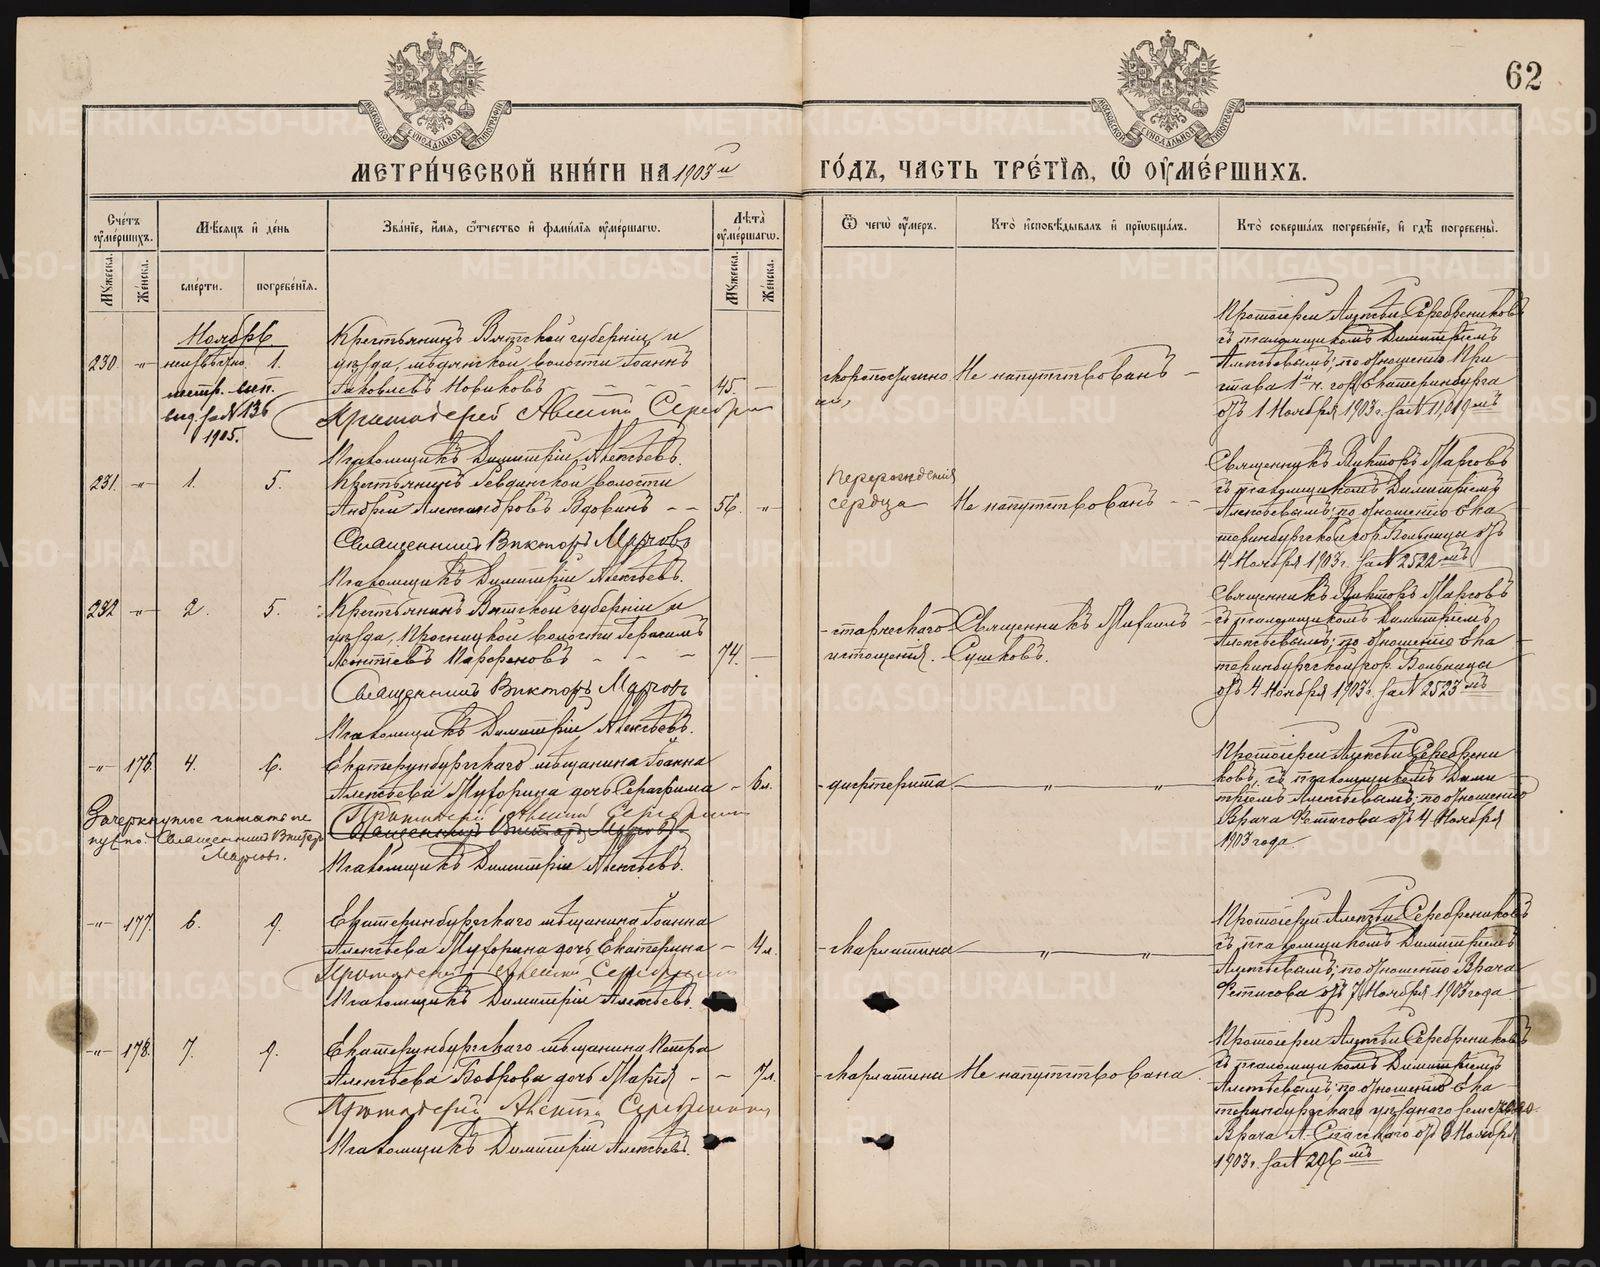 62
МОСКОВСКОЙ СѴНОДАЛЬНОЙ ТИПОГРАФІИ
МОСКОВСКОЙ СѴНОДАЛЬНОЙ ТИПОГРАФІИ
МЕТРИ́ЧЕСКОЙ КНИ́ГИ НА 1903 й
ГО́ДЪ, ЧАСТЬ ТРЕ́ТІѦ, Ѿ ОУМЕ́РШИХЪ.
Сче́тъ оумершихъ.
Мѣсяцъ и день
Зва́ніе, и́мя, о́тчество и фами́лія оуме́ршагѡ.
Лѣта̀ оумершагѡ.
Ѿ чегѡ̀ оумеръ.
Кто̀ исповѣ́дывалъ и пріѡбща́лъ.
Кто̀ соверша́лъ погребе́ніе, и гдѣ̀ погребены̀.
Мужеска.
Женска.
сме́рти.
погребе́нія.
Мужеска.
Женска.
Ноябрь.
230. -"- неизвѣстно 1.
Крестьянинъ Вятской губерніи и
уѣзда, волости Іоаннъ
Іаковлевъ Новиковъ - - - 45. —
Протоіерей Алексій Серебрен
Псаломщикъ Димитрій Алексѣевъ.
метр. вып.
выд. за № 136
1905.
скоропостижно
Не напутствованъ —
Протоіерей Алексѣй Серебрениковъ
съ псаломщикомъ Димитріемъ
Алексѣевымъ; по отношенію При-
става 1й ч. гор. Екатеринбурга
отъ 1 Ноября 1903 г. за № 11,019мъ
231. -"- 1. 5.
Крестьянинъ Ревдинской волости
Андрей Александровъ Вдовинъ - - 56. -"-
Священникъ Викторъ Марговъ
Псаломщикъ Димитрій Алексѣевъ.
Перерожденія
сердца
Не напутствованъ - -
Священникъ Викторъ Марговъ
съ псаломщикомъ Димитріемъ
Алексѣевымъ; по отношенію Ека-
теринбургской гор. Больницы отъ
4 Ноября 1903 г. за № 2522мъ
232 -"- 2. 5.
Крестьянинъ Вятской губерніи и
уѣзда, волости Герасимъ
Леонтіевъ - - - 74. —
Священникъ Викторъ Марговъ
Псаломщикъ Димитрій Алексѣевъ.
- старческаго
истощенія.
Священникъ Михаилъ
Сушковъ.
Священникъ Викторъ Марговъ
съ псаломщикомъ Димитріемъ
Алексѣевымъ; по отношенію Ека-
теринбургской гор. Больницы
отъ 4 Ноября 1903 г. за № 2523мъ
-"- 176. 4. 6.
Екатеринбургскаго мѣщанина Іоанна
Алексѣева Мухорина дочь Серафима - 6 л.
Протоіерей Алексій Серебрен
Священникъ Викторъ Марговъ
Псаломщикъ Димитрій Алексѣевъ.
Зачеркнутое читать не
нужно. Священникъ Викторъ
Марговъ.
- дифтерита
Протоіерей Алексѣй Серебрени-
ковъ, съ псаломщикомъ Дими-
тріемъ Алексѣевымъ; по отношенію
Врача Фетисова отъ 4 Ноября
1903 года.
-"- 177. 6. 9.
Екатеринбургскаго мѣщанина Іоанна
Алексѣева Мухорина дочь Екатерина - 4 л.
Протоіерей Алексій Серебрен
Псаломщикъ Димитрій Алексѣевъ.
- скарлатина
Протоіерей Алексѣй Серебрениковъ
съ псаломщикомъ Димитріемъ
Алексѣевымъ; по отношенію Врача
Фетисова отъ 7 Ноября 1903 года
-"- 178. 7. 9.
Екатеринбургскаго мѣщанина Петра
Алексѣева Боброва дочь Марія - - 7 л.
Протоіерей Алексій Серебрен
Псаломщикъ Димитрій Алексѣевъ.
- скарлатина
Не напутствована
Протоіерей Алексѣй Серебрениковъ
съ псаломщикомъ Димитріемъ
Алексѣевымъ; по отношенію Ека-
теринбургскаго уѣзднаго земскаго
Врача А. Спасскаго отъ 8 Ноября
1903 г. за № 296мъ
METRIKI.GASO-URAL.RU